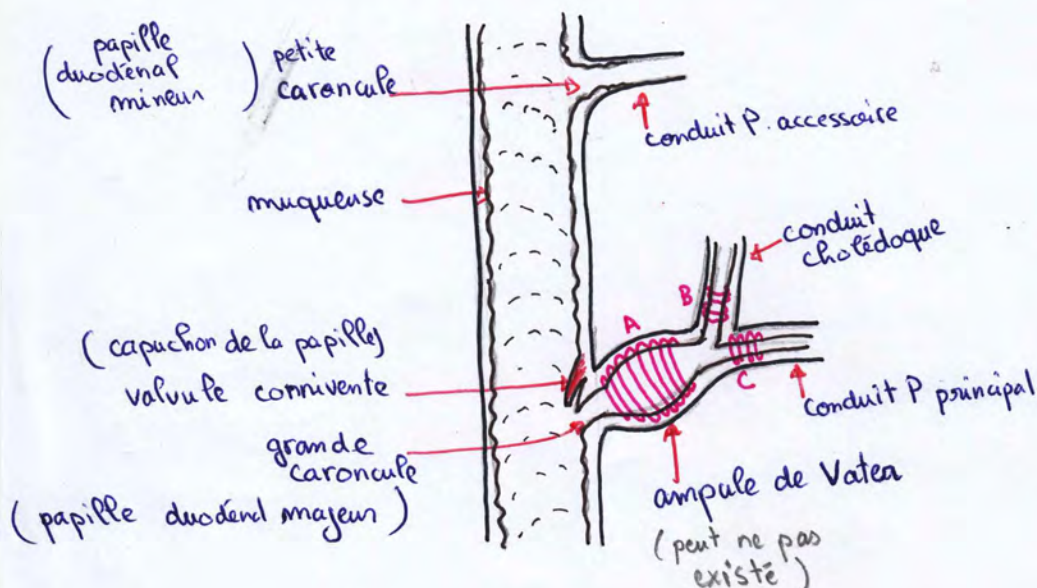 (papille
duodénal
mineur)
petite
caroncule
conduit P. accessoire
muqueuse
conduit
cholédoque
B
A
(capuchon de la papille)
valvule connivente
C
conduit P principal
grande
caroncule
(papille duodénal majeur)
ampule de Vater
(peut ne pas
existé)